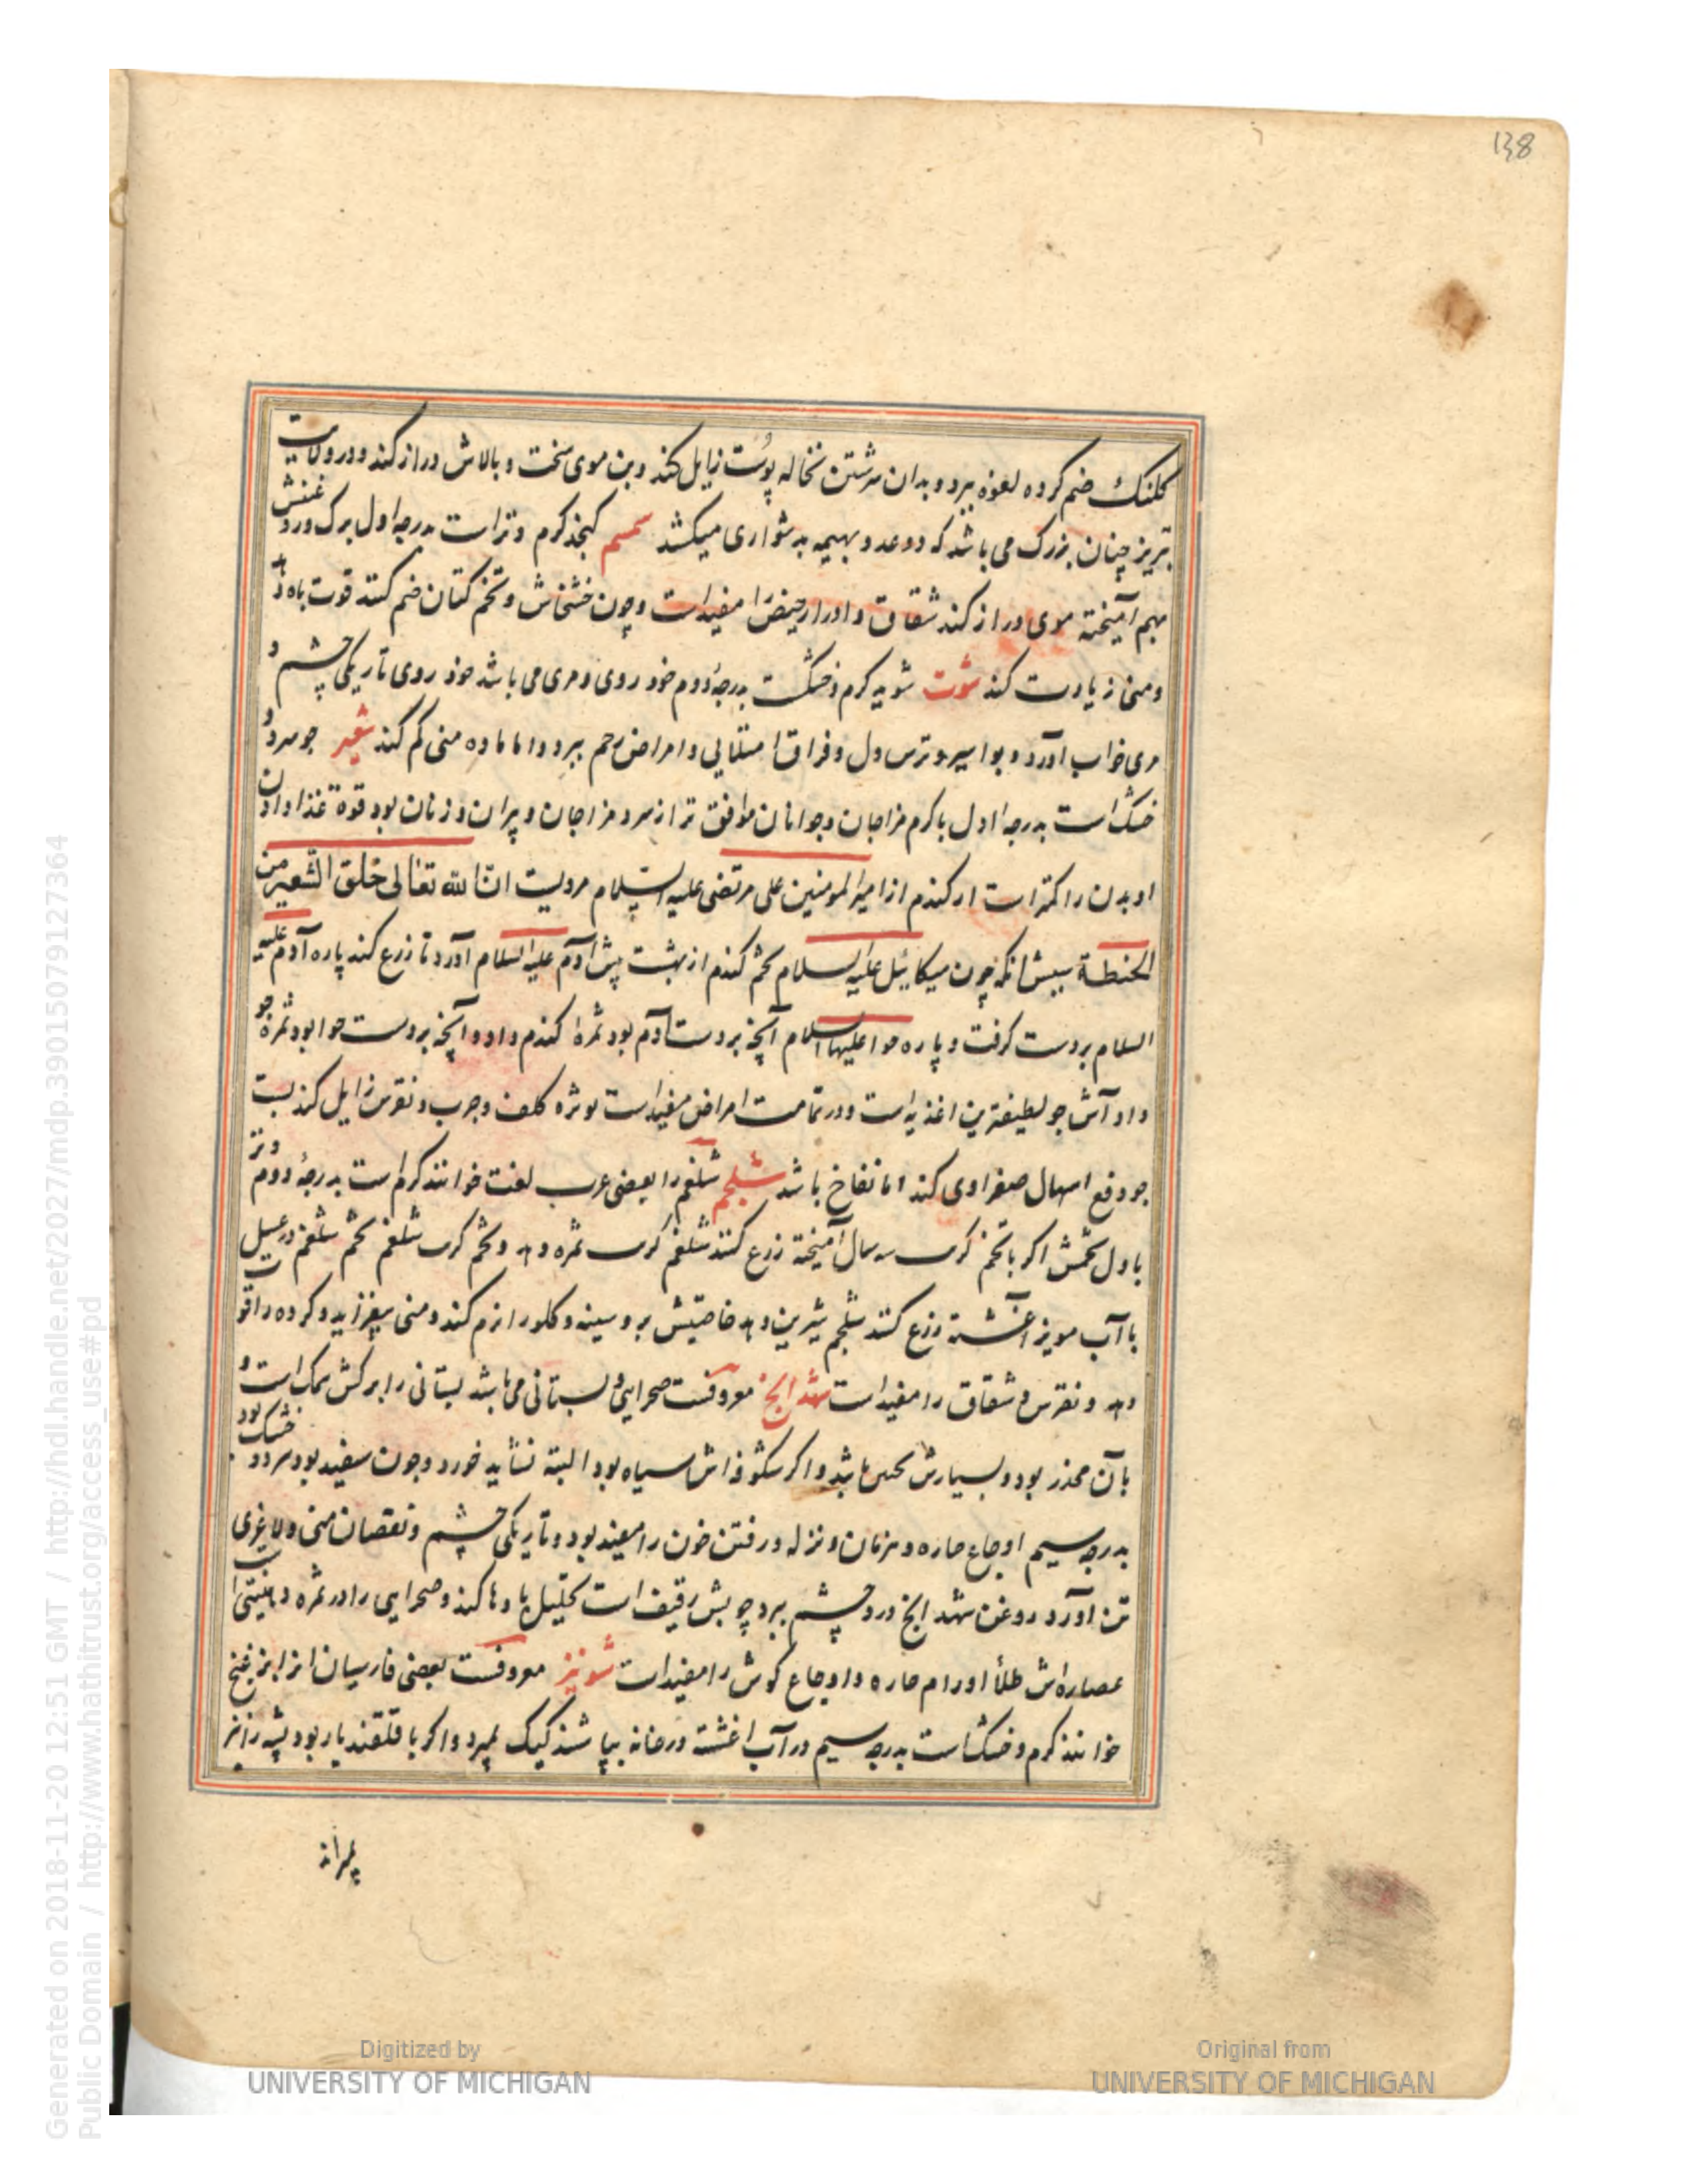 138
کلنک ضم کرده لعوه ببرد و بدان سرشتن نخاله پوست زایل کند و بن موی سخت و بالاش دراز کند و در ولایت
تبریز چنان بزرک می باشد که دو عدد بهیمه بدشواری میکشد سمسم کنجد کرم و تر است بدرجه اول برک ورد
بهم آمیخته موی دراز کند شقاق و ادرار حیض را مفید است و چون خشخاش و تخم کتان ضم کنند قوت باه دهد
و منی زیادت کند شوت شوید کرم و خشکست بدرجه دوم خود روی و مری می باشد خود روی تاریکی چشم و
مری خواب آورد و بواسیر و ترس دل و فراق امتلایی و امراض رحم ببرد و اما ماده منی کم کند شعیر جو سرد و
خشک است بدرجه اول با کرم مزاجان و جوانان موافق تر از سرد مزاجان و پیران و زنان بود قوة غذا دادن
او بدن را کمتر است از کندم از امیر المومنین علی مرتضی علیه السلام مرویست ان الله تعالی خلق الشعیر من
الحنطة سببش آنکه چون میکائیل علیه السلام تخم کندم از بهشت پیش آدم علیه السلام آورد تا زرع کند پاره آدم علیه
السلام بردست کرفت و پاره حوا علیها السلام آنچه بردست آدم بود ثمره کندم داد و آنچه بردست حوا بود ثمره جو
داد آش جو لطیفترین اغذیه است و در تمامت امراض مفید است بویژه کلف و جرب و نقرس زایل کند بست
جو دفع اسهال صفراوی کند اما نفاخ باشد شلجم شلغم را بعضی عرب لفت خوانند کرم است بدرجه دوم و تر
باول تخمش اکر با تخم کرنب سه سال آمیخته زرع کنند شلغم کرنب ثمره دهد و تخم کرنب شلغم تخم شلغم در عسل
یا آب مویز آغشته زرع کنند شلجم شیرین دهد خاصیتش برو سینه و کلو را نرم کند و منی بیفزاید و کرده را قوت
دهد و نقرس و شقاق را مفید است شهدانج معروفست صحرایی و بستانی می باشد بستانی را برکش بنک است و
بآن مخدر بود و بسیارش باشد و اکر شکوفه اش سیاه بود البته نشاید خورد و چون سفید بود سرد و خشک بود
بدرجه سیم اوجاع حاره و نزله و رفتن خون را مفید بود و تاریکی چشم و نقصان منی و لاغری
تن آورد روغن شهدانج درد چشم ببرد چوبش رقیف است تحلیل بادها کند و صحرایی را در ثمره دهنیتی است
عصاره اش طلأ اورام حاره و اوجاع کوش را مفید است شونیز معروفست بعضی فارسیان انرا
خوانند کرم و خشکست بدرجه سیم در آب اغشته در خانه بپاشند کیک بمیرد و اکر با قلقند یار بود پشه را نیز
بمیراند